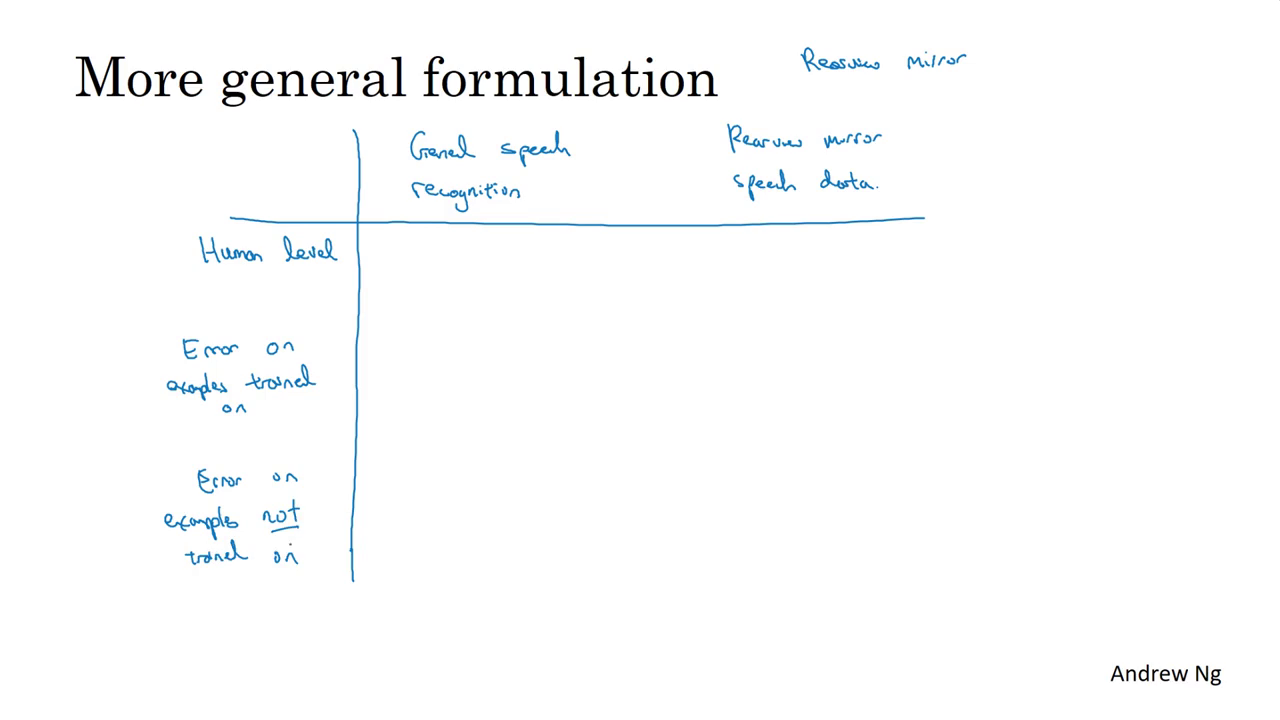 More general formulation
Rearview mirror
General speech
recognition
Rearview mirror
speech data.
Human level
Error on
examples trained
on
Error on
examples not
trained on
Andrew Ng